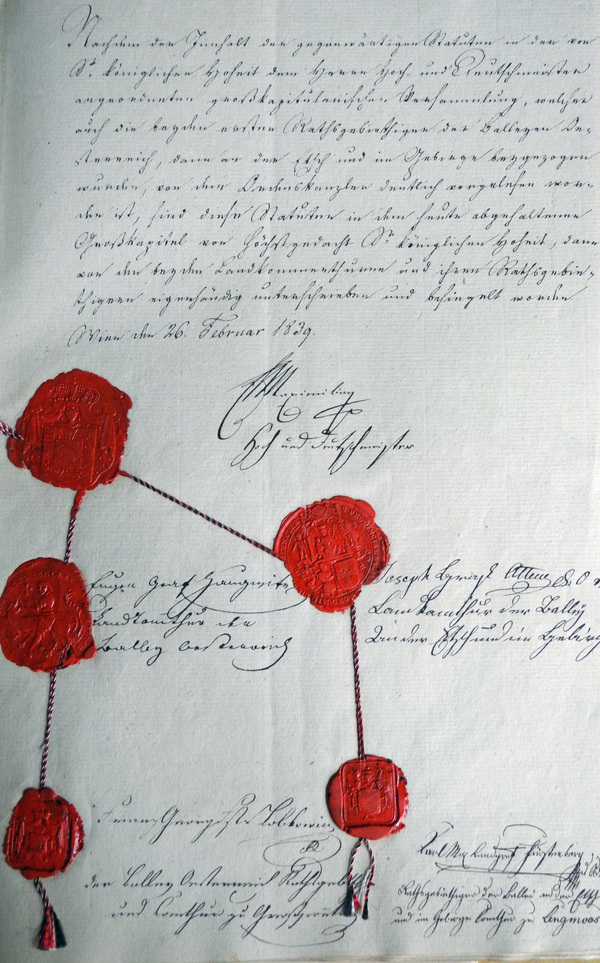 Nachdem der Innhalt der gegenwärtigen Statuten in der von
Sr. königlichen Hoheit dem Herrn Hoch- und Deutschmeister
angeordneten großkapitularischen Versammlung, welcher
auch die beyden ersten Rathsgebiethiger der Balleyen Oe-
sterreich, dann an der Etsch und im Gebirge beygezogen
wurden, von dem Ordenskanzler deutlich vorgelesen wor-
den ist, sind diese Statuten in dem heute abgehaltenen
Großkapitel von Höchstgedacht Sr. königlichen Hoheit, dann
von den beyden Landkommenthuren und ihren Rathsgebie-
thigern eigenhändig unterschrieben und besiegelt worden
Wien den 26. Februar 1839.
Maximilian
Hoch und Deutschmeister
Eugen Graf Haugwitz
Landkomthur der
Balley Oesterreich
Joseph Graf Attems
Landkomthur der Balley
An der Etsch und im Gebirg
Franz Georg Lobkowicz
der Balley Oesterreich Rathsgeb
und Comthur zu
Karl Landgraf Fürstenberg
Rathsgebiethiger der Ballei an der Etsch
und im Gebirge Comthur zu Lengmoos